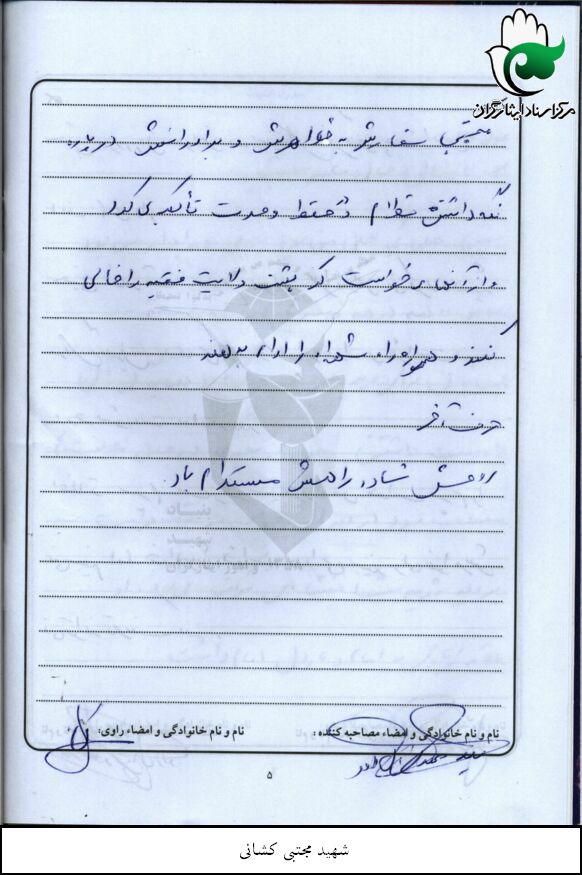 مرکز اسناد ایثارگران
مجتبی سفارش به خواهرش و برادرانش در باره
نگه داشتن نظام و حفظ وحدت تأکید می کرد
و از آنها می خواست که پشت ولایت فقیه را خالی
نکنند و همواره راه شهداء را ادامه بدهند
حرف آخر
روحش شاد، راهش مستدام باد.
نام و نام خانوادگی و امضاء مصاحبه کننده :
نام و نام خانوادگی و امضاء راوی:
۵
شهید مجتبی کشانی